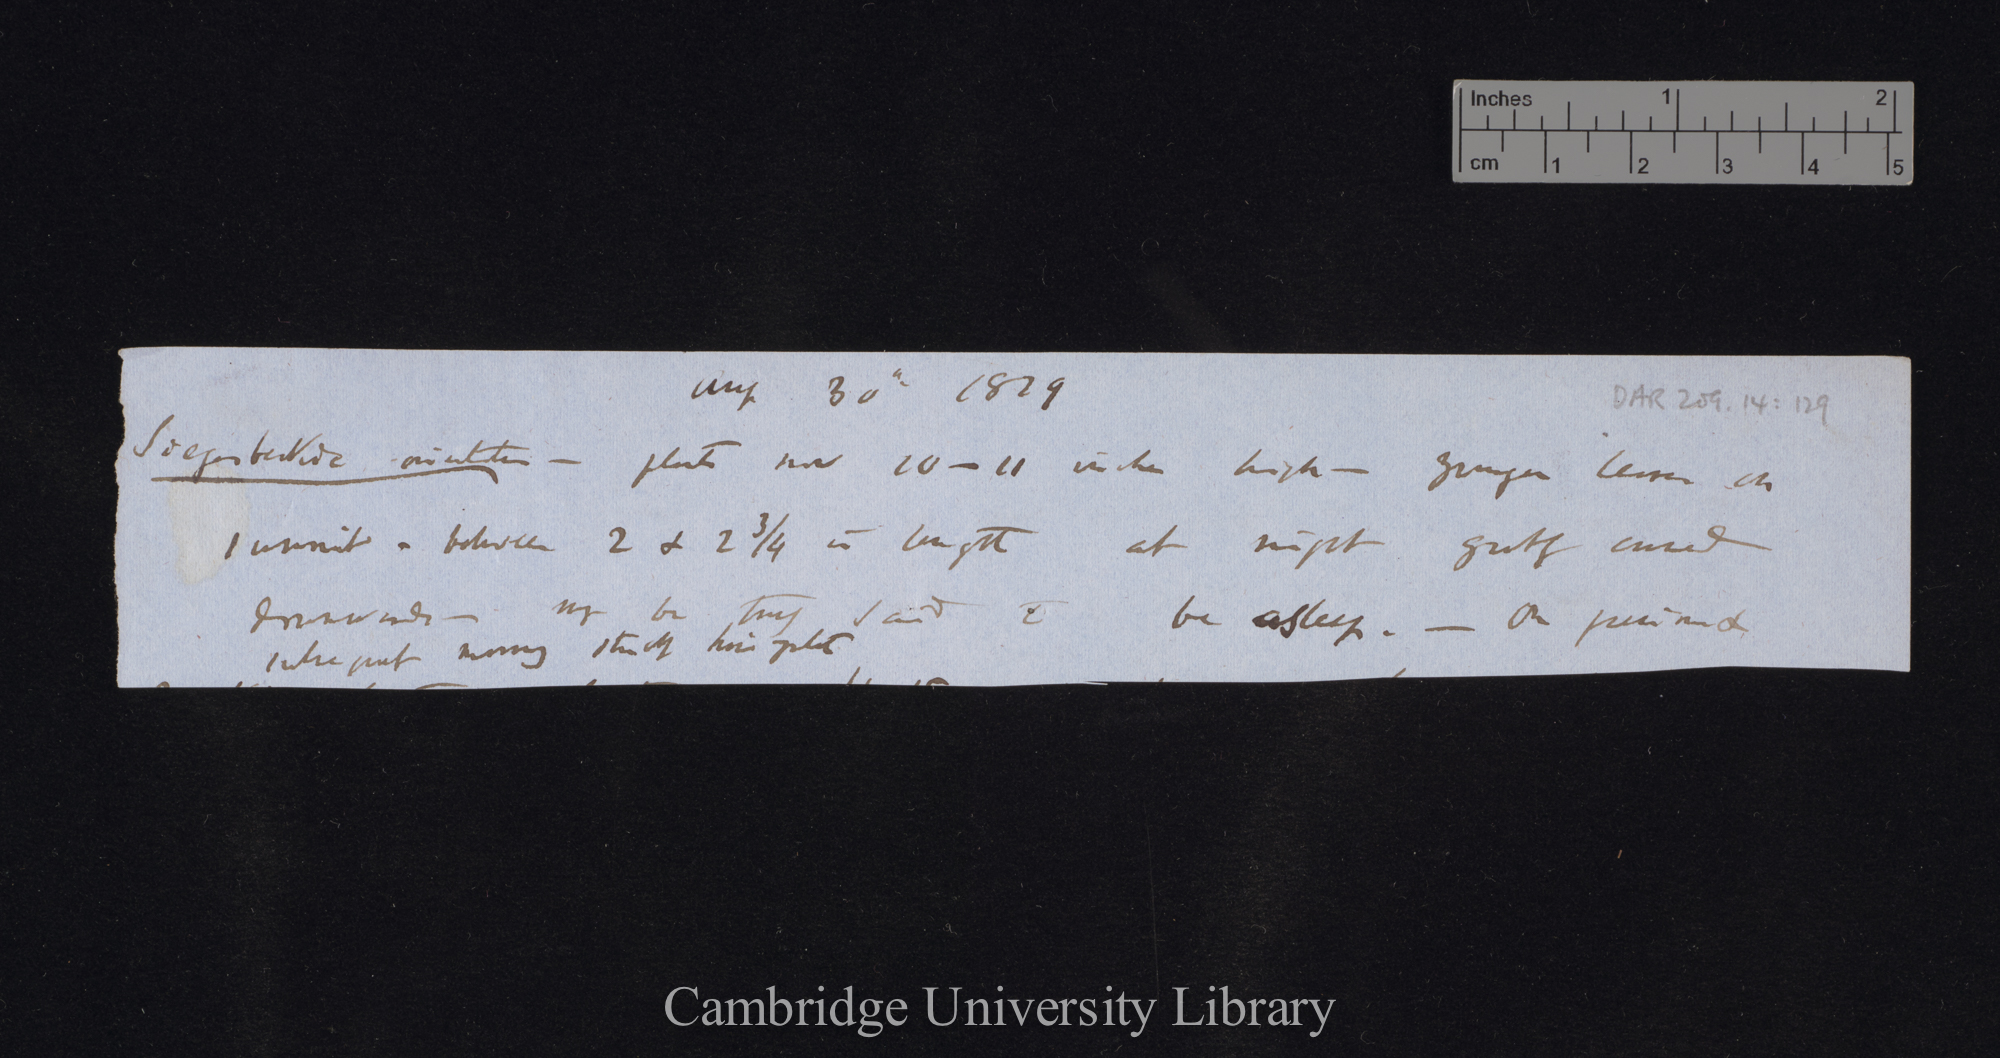 Inches 1 2
cm 1 2 3 4 5
Aug 30th 1879
DAR 209.14: 129
Siegesbeckia orientalis — plants now 10–11 inches high — younger leaves on
summit - between 2 & 2 3/4 in length at night greatly curved
downwards — may be truly said to be asleep. — On previous &
subsequent morning stood horizontal
Cambridge University Library